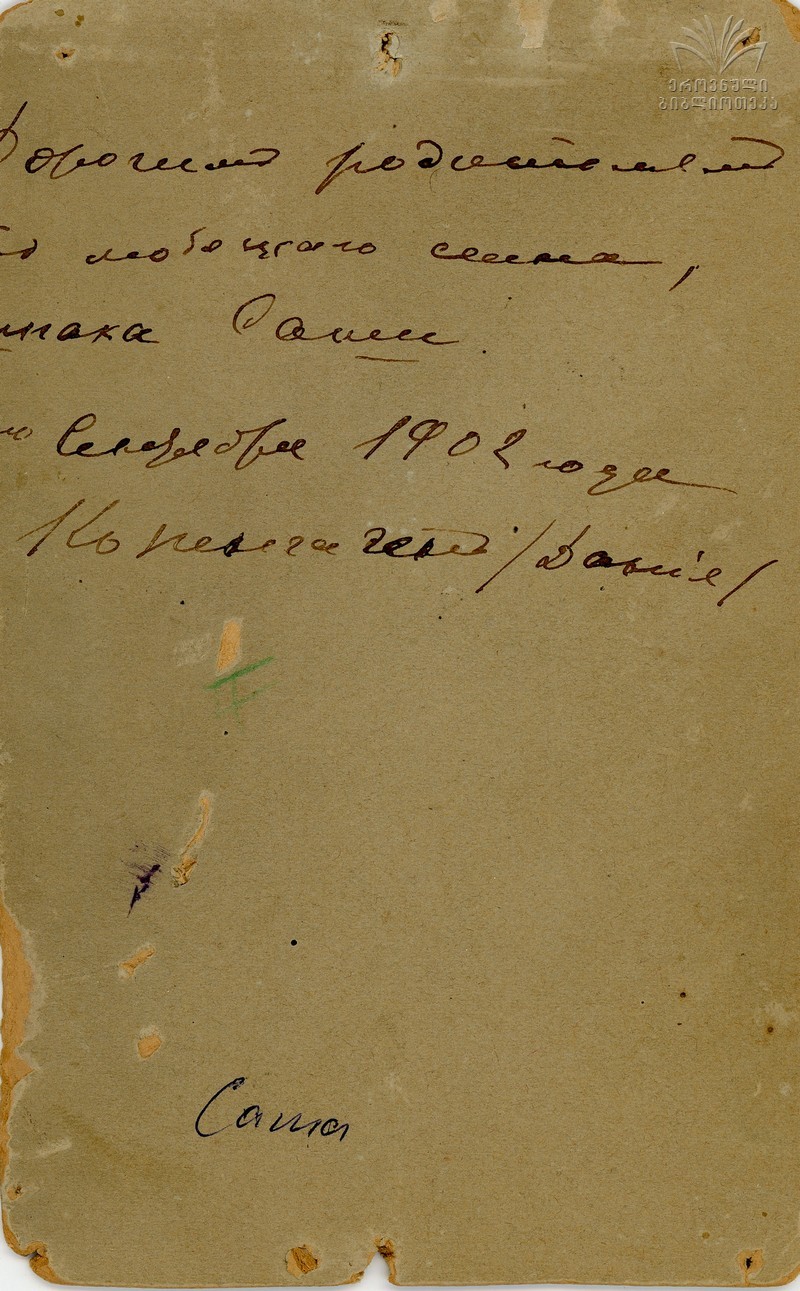 ეროვნული
ბიბლიოთეკა
Дорогимъ родителямъ
любящаго сына,
Саши.
Сентября 1902 года
Копенгагенъ /Данія/
Саша